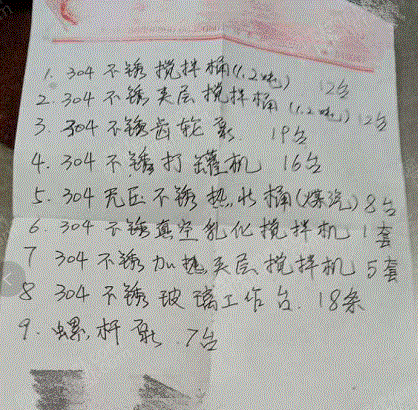 1. 304 不锈 搅拌桶(1.2吨) 12台
2. 304 不锈 夹层搅拌桶 (1.2吨) 12台
3. 304 不锈齿轮泵. 19台
4. 304 不锈打罐机 16台
5. 304 无压不锈热水桶(煤汽) 8台
6. 304 不锈真空乳化搅拌机 1套
7 304 不锈加热夹层搅拌机 5套
8 304 不锈玻璃工作台. 18条
9. 螺杆泵. 7台